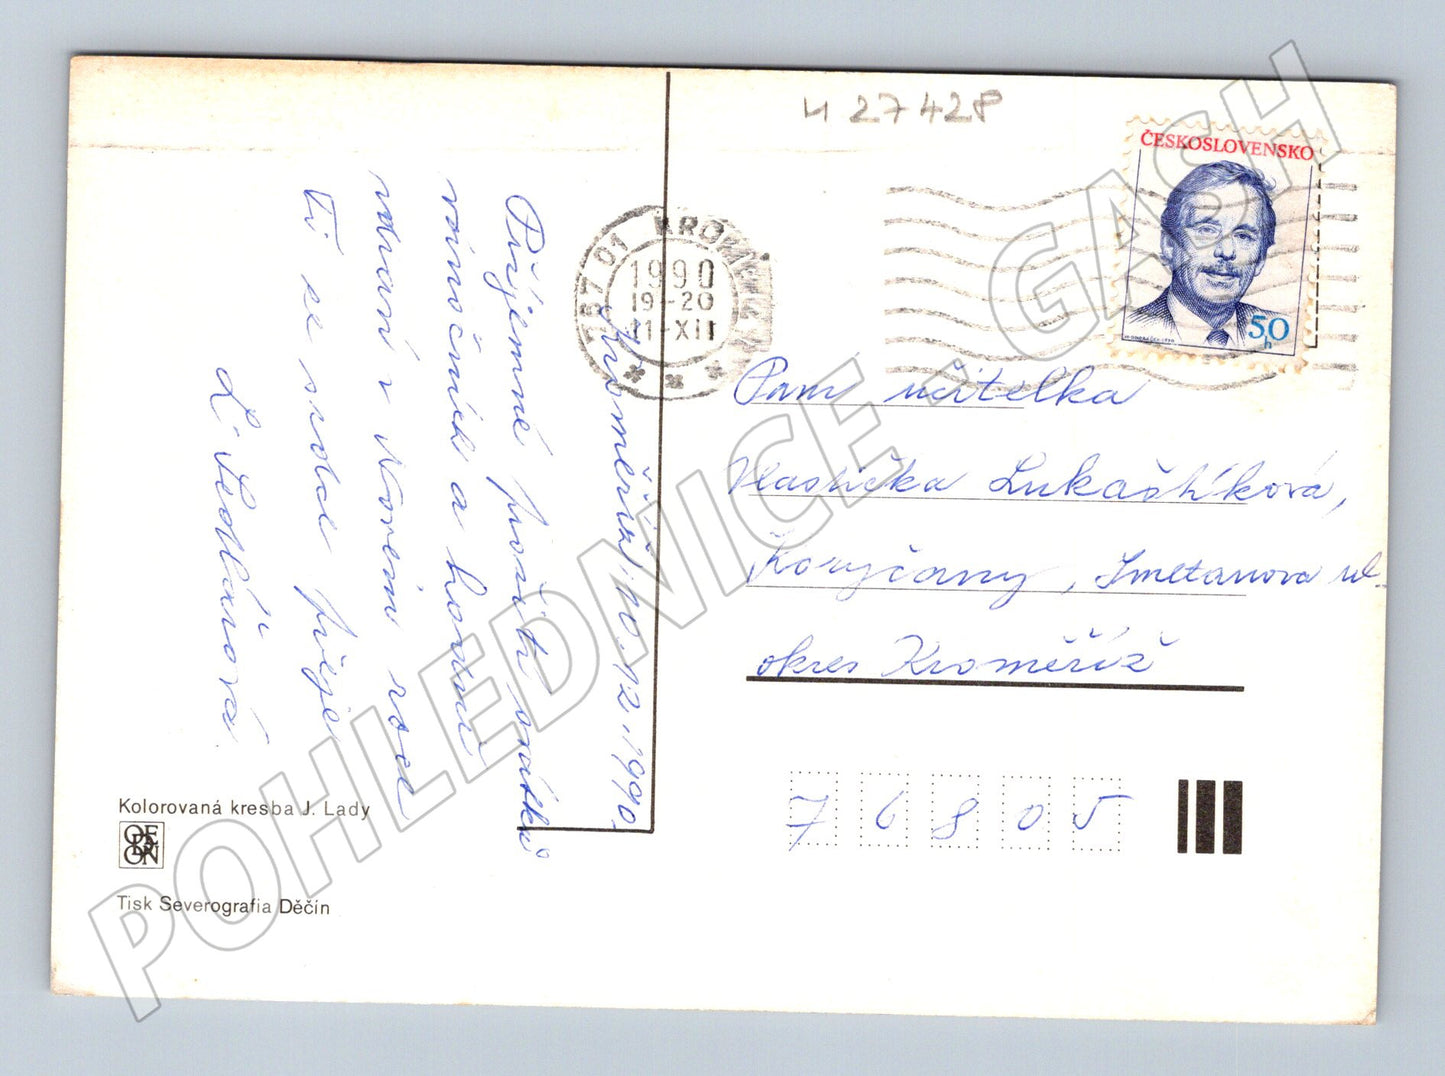 u 27428
ČESKOSLOVENSKO
50
h
767 01 KROMĚŘÍŽ 1
1990
19-20
11-XII
Kroměříž, 10.12.1990.
Příjemné prožití svátků
vánočních a hodně
zdraví v Novém roce
Ti ze srdce přeje
L. Sedlářová
Paní učitelka
Vlastička Lukaštíková,
Koryčany, Smetanova ul.
okres Kroměříž
76805
Kolorovaná kresba J. Lady
ODEON
Tisk Severografia Děčín
POHLEDNICE - GASH